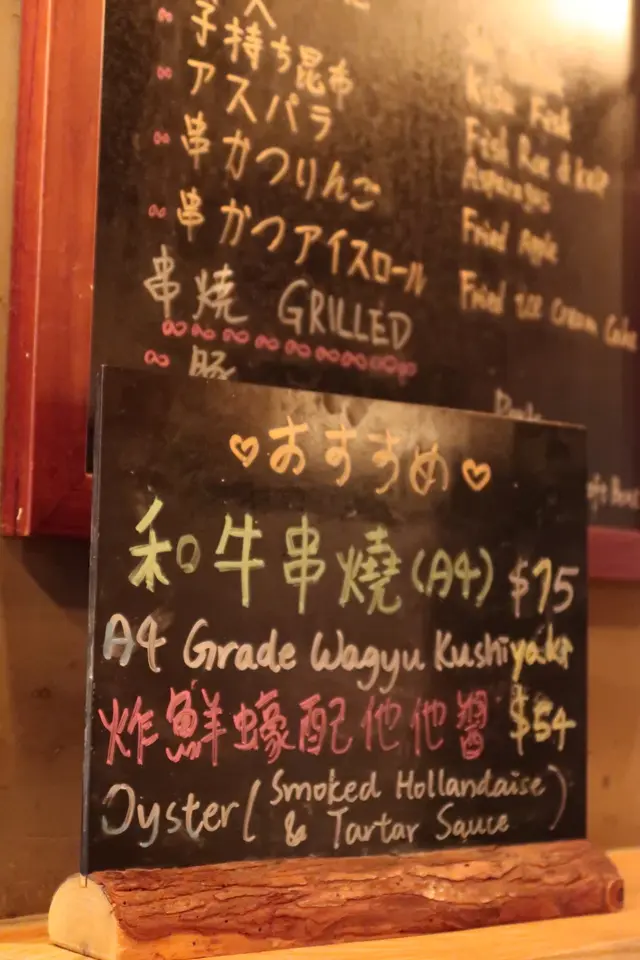 子持ち昆布
アスパラ
串かつりんご
串かつアイスロール
串燒 GRILLED
豚
Kisu Fish
Fish Roe & kelp
Asparagus
Fried Apple
Fried Ice Cream Cake
Pork
♡おすすめ♡
和牛串燒(A4) $75
A4 Grade Wagyu Kushiyaki
炸鮮蠔配他他醬 $54
Oyster (Smoked Hollandaise
& Tartar Sauce)